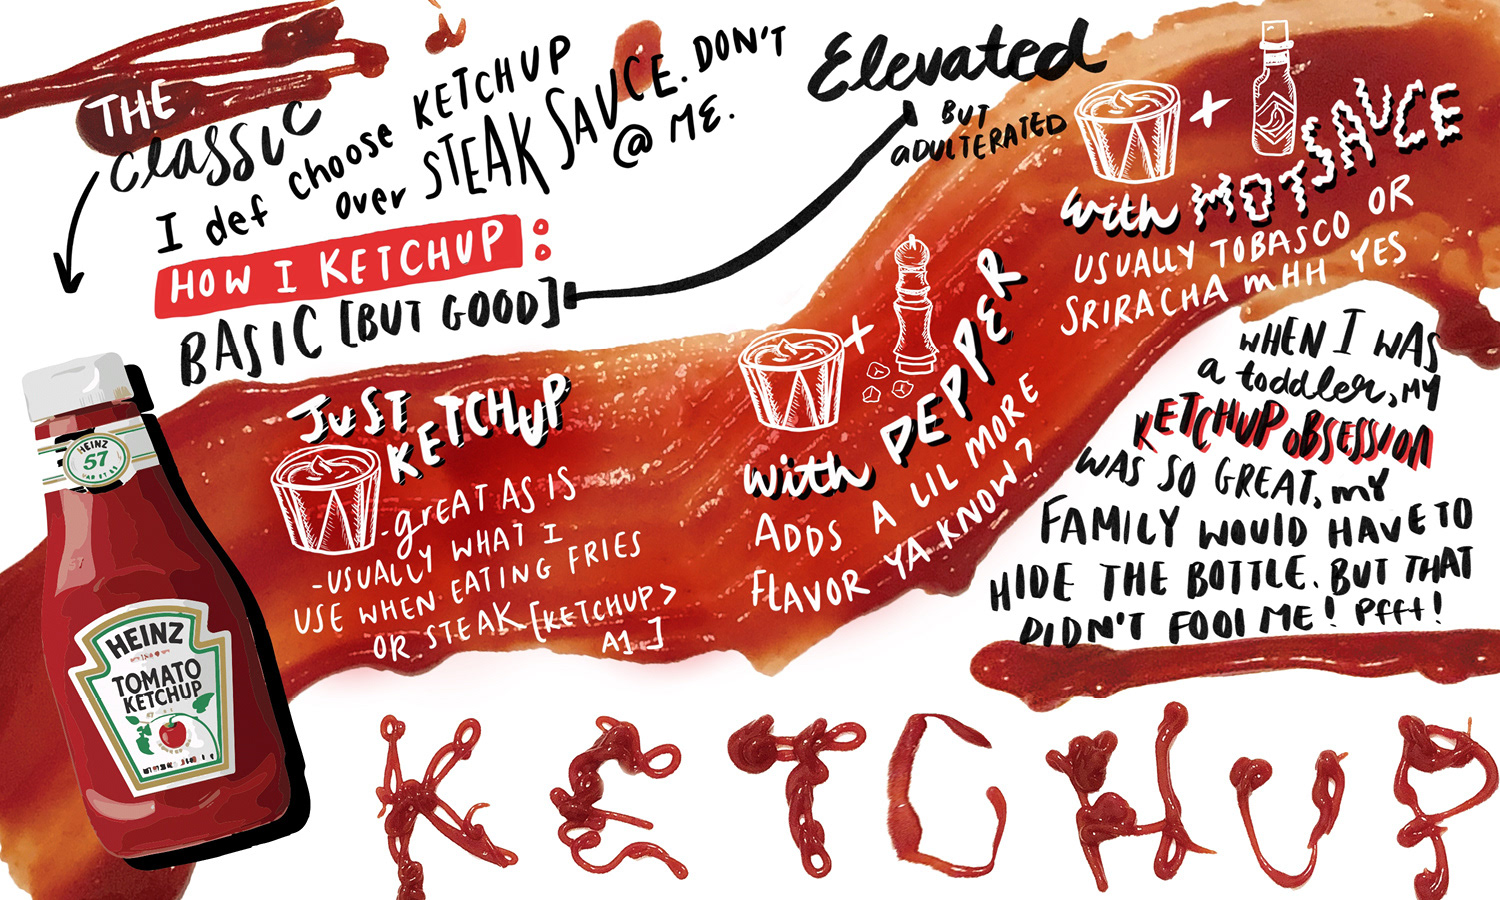 THE
classic
I def choose KETCHUP
over STEAK SAUCE. DON'T
@ ME.
HOW I KETCHUP:
BASIC [BUT GOOD]
Elevated
BUT
aDULTERATED
JUST
KETCHUP
-great AS IS
-USUALLY WHAT I
USE WHEN EATING FRIES
OR STEAK [KETCHUP >
A1]
+
with PEPPER
ADDS A LIL MORE
FLAVOR YA KNOW?
+
with HOT SAUCE
USUALLY TOBASCO OR
SRIRACHA mHH YES
WHEN I WAS
a toddler, MY
KETCHUP OBSESSION
WAS SO GREAT, mY
FAMILY WOULD HAVE TO
HIDE THE BOTTLE. BUT THAT
DIDN'T FOOl ME! Pfft!
HEINZ
57
HEINZ
TOMATO
KETCHUP
KETCHUP